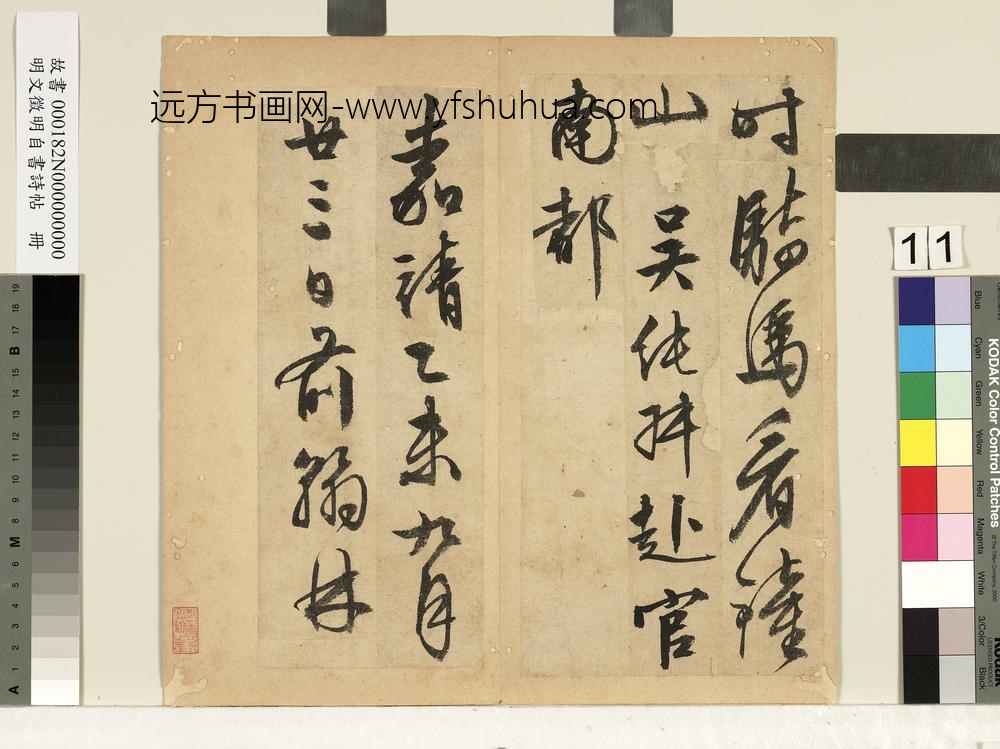 远方书画网-www.yfshuhua.com
时騎馬看鍾
山
吴純叔赴官
南都
嘉靖乙未九月
廿三日前翰林
故書 000182N000000000
明文徵明自書詩帖 冊
11
KODAK Color Control Patches
Blue
Cyan
Green
Yellow
Red
Magenta
White
3/Color
Black
Kodak
A 1 2 3 4 5 6 M 8 9 10 11 12 13 14 15 B 17 18 19